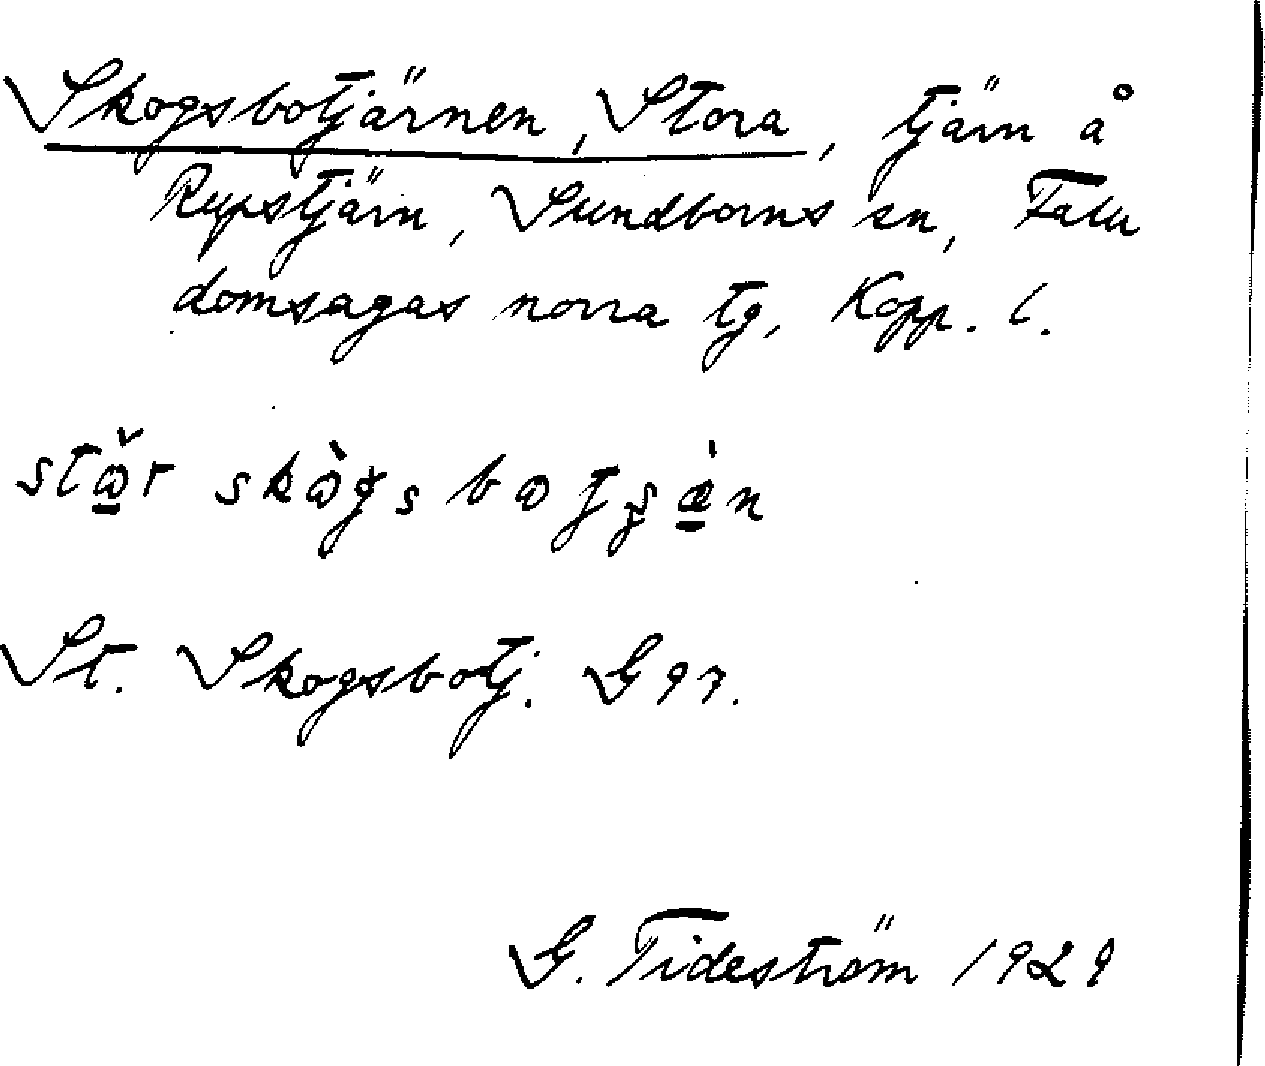 Skogsbotjärnen, Stora, tjärn å
Rupstjärn, Sundborns sn, Falu
domsagas norra tg, Kopp. l.
St. Skogsbotj. G 97.
G. Tideström 1929